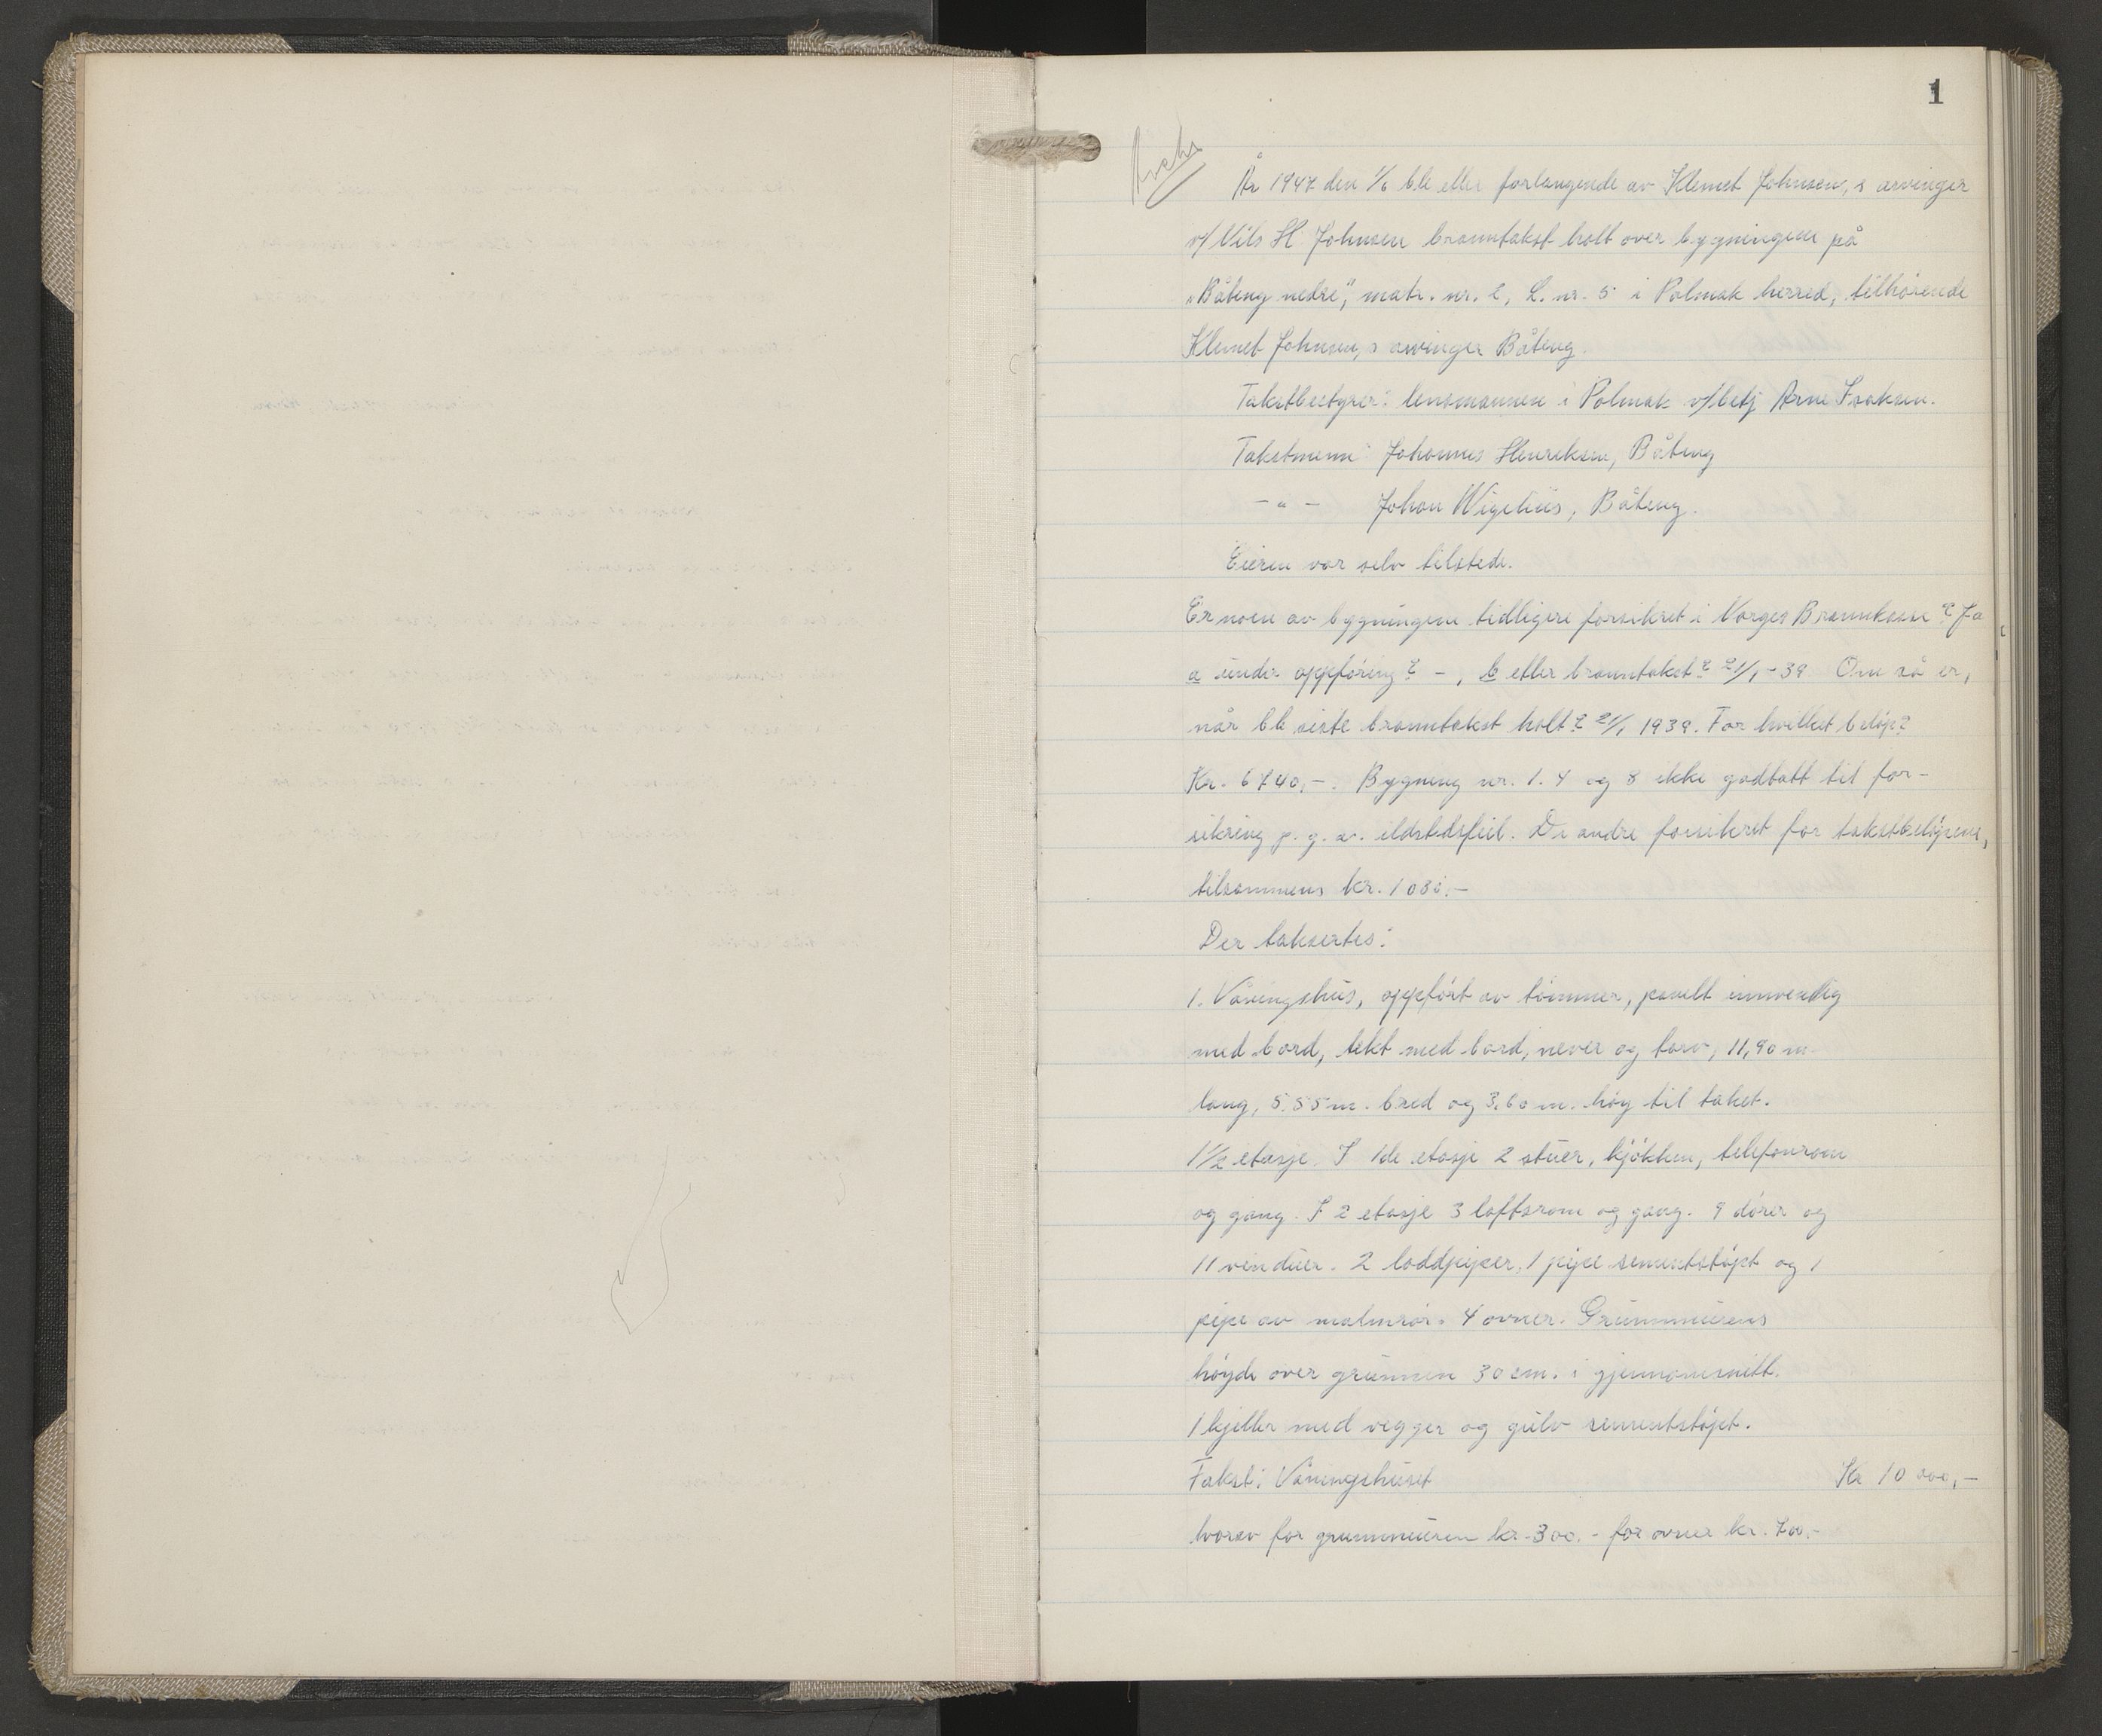 1
År 1947 den 1/6 ble etter forlangende av Klemet Johnsen,s arvinger
v/ Nils H. Johnsen branntakst holt over bygningene på
„Båteng nedre", matr. nr. 2, L. nr. 5 i Polmak herred, tilhørende
Klemet Johnsen,s arvinger Båteng.
Takstbestyrer: lensmannen i Polmak v/betj Arne Isaksen.
Takstmenn: Johannes Henriksen, Båteng
- " - Johan Wigelius, Båteng.
Eieren var selv tilstede.
Er noen av bygningene tidligere forsikret i Norges Brannkasse? Ja
a under oppføring? -, b etter branntakst? 21/1-39 Om så er,
når ble siste branntakst holt? 21/1 1939. For hvilket beløp?
Kr. 6740,-. Bygning nr. 1. 4 og 8 ikke godtatt til for-
sikring p. g. a. ildstedsfeil. De andre forsikret for takstbeløpene,
tilsammens kr. 1030.-
Der taksertes:
1. Våningshus, oppført av tømmer, panelt innvendig
med bord, tekt med bord, never og torv, 11,90 m
lang, 5.55 m. bred og 3,60 m. høg til taket.
1 1/2 etasje. I 1de etasje 2 stuer, kjøkken, telefonrom
og gang. I 2 etasje 3 loftsrom og gang. 9 dører og
11 vinduer. 2 loddpiper, 1 pipe sementstøpt og 1
pipe av malmrør. 4 ovner. Grunnmurens
høyde over grunnen 30 cm. i gjennomsnitt.
1 kjeller med vegger og gulv sementstøpt.
Takst: Våningshuset Kr 10 000,-
hvorav for grunnmuren kr. 300.- for ovner kr. 700.-